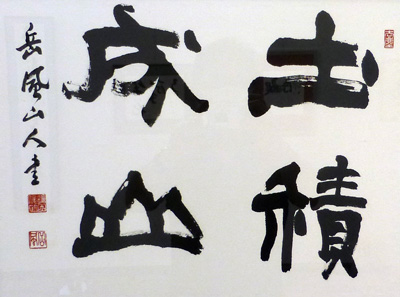 土積
成山
岳風山人書